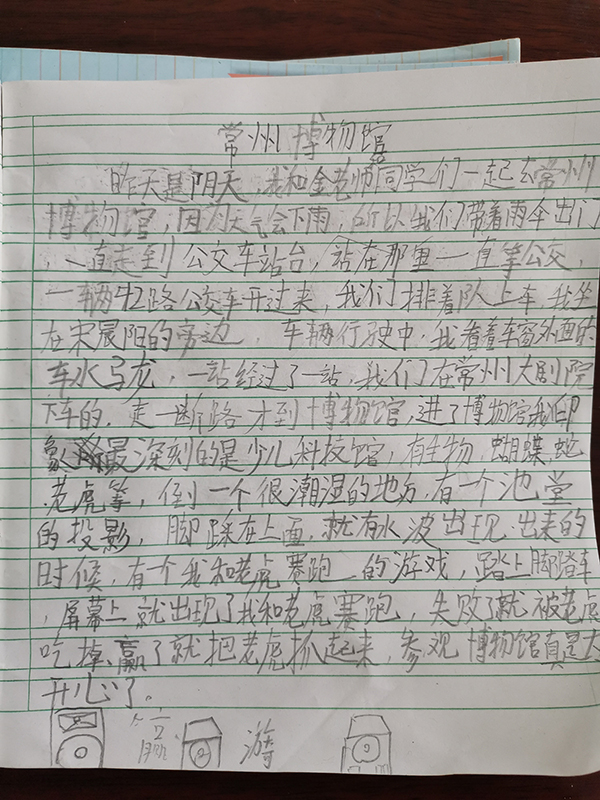 常州博物馆
昨天是阴天,我和金老师同学们一起去常州
博物馆,因为天气会下雨,所以我们带着雨伞出门
,一直走到公交车站台,站在那里一直等公交,
一辆42路公交车开过来,我们排着队上车,我坐
在宋晨阳的旁边,车辆行驶中,我看着车窗外面的
车水马龙,一站经过了一站,我们在常州大剧院
下车的,走一断路才到博物馆,进了博物馆我印
象最深刻的是少儿科技馆,有生物,蝴蝶,蛇
老虎等,到一个很潮湿的地方,有一个池堂
的投影,脚踩在上面,就有水波出现,出来的
时候,有个我和老虎赛跑的游戏,踏上脚踏车
,屏幕上就出现了我和老虎赛跑,失败了就被老虎
吃掉,赢了就把老虎抓起来,参观博物馆真是太
开心了。
赢 游